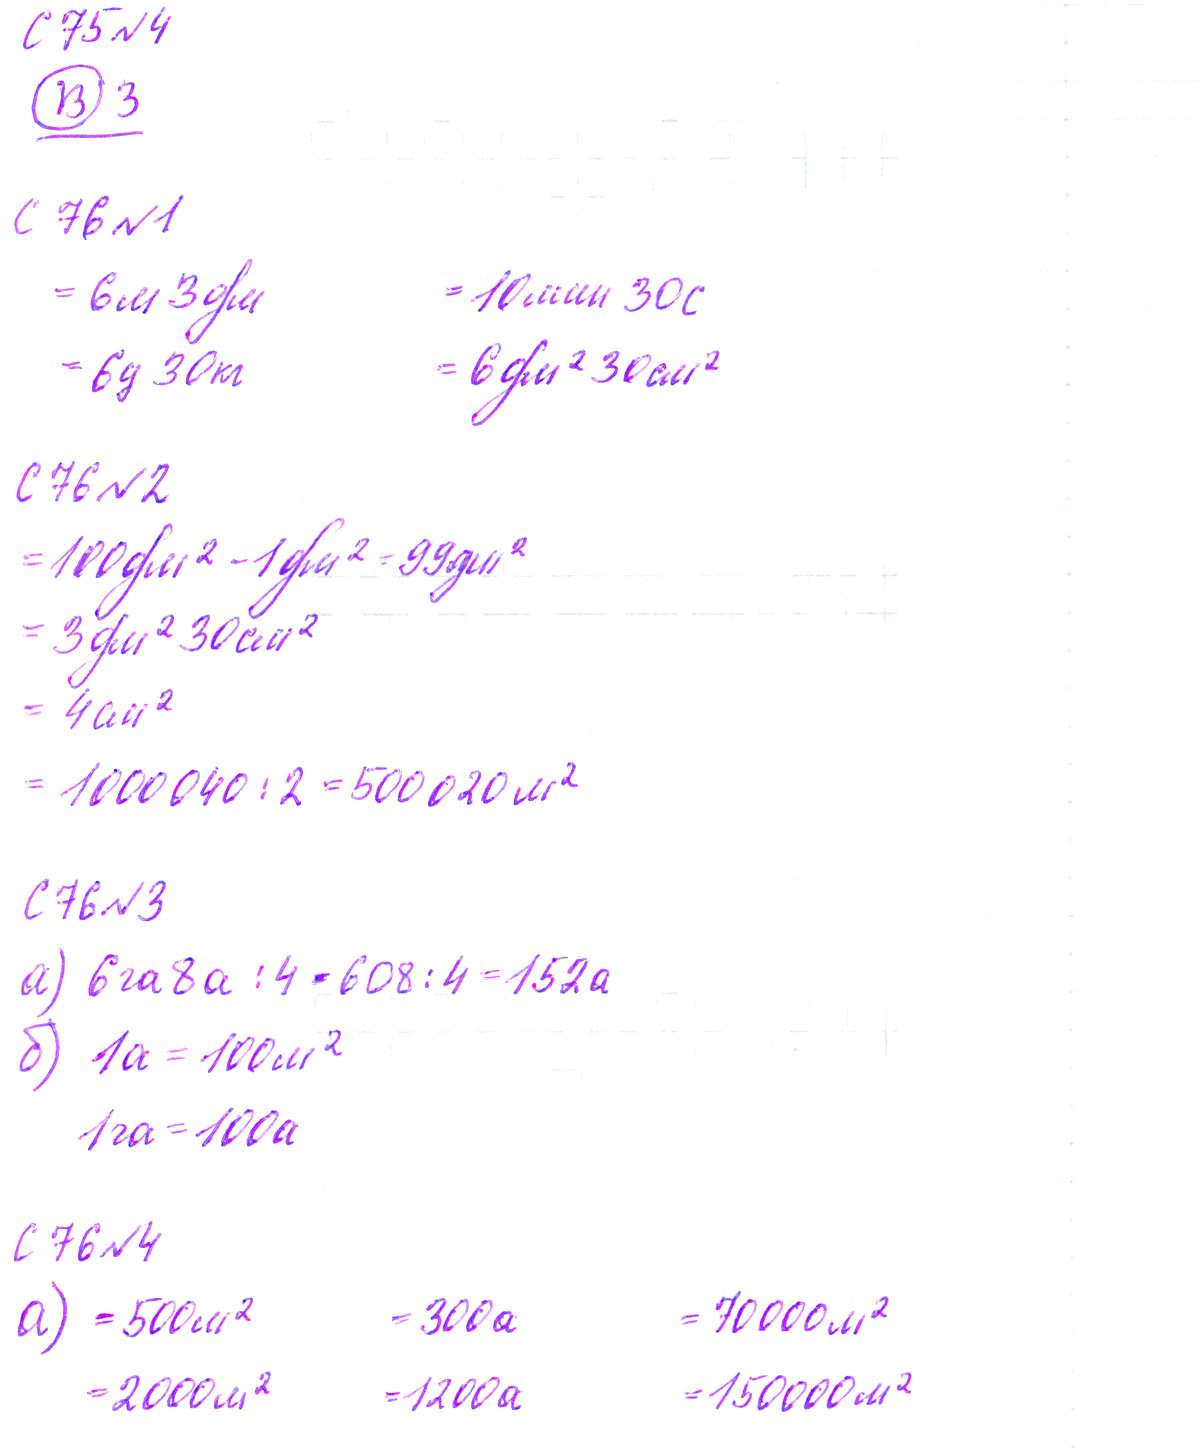 С 75 №4
В 3
С 76 №1
= 6м 3дм = 10мин 30с
= 6ц 30кг = 6дм² 30см²
С 76 №2
= 100дм² - 1дм² = 99дм²
= 3дм² 30см²
= 4см²
= 1000040 : 2 = 500020м²
С 76 №3
а) 6га 8а : 4 = 608 : 4 = 152а
б) 1а = 100м²
1га = 100а
С 76 №4
а) = 500м² = 300а = 70000м²
= 2000м² = 1200а = 150000м²